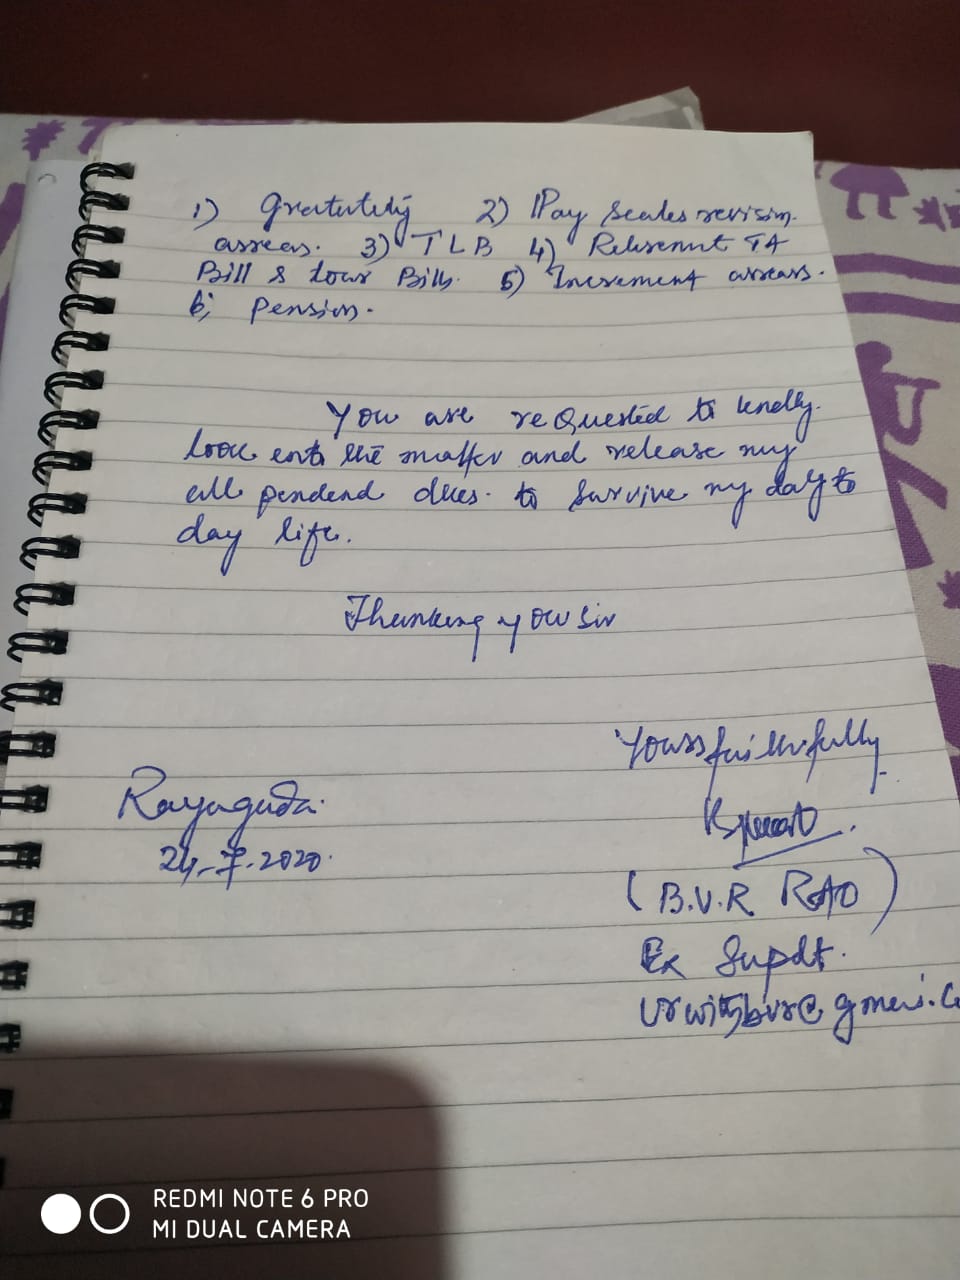 1) Gratutity 2) Pay Scales revision
arrears. 3) TLB 4) Retirement TA
Bill & tour Bills. 5) Increment arrears.
6) Pension.
You are requested to kindly
look into the matter and release my
all pendend dues. to survive my day to
day life.
Thanking you Sir
Yours faithfully
Rayagada.
24-7-2020.
(B.V.R RAO)
Ex Supdt.
REDMI NOTE 6 PRO
MI DUAL CAMERA